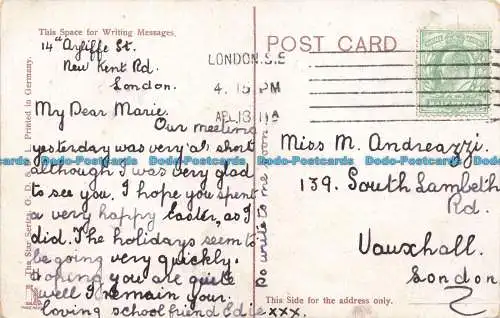 This Space for Writing Messages.
14a Ayliffe St.
New Kent Rd.
London.
My Dear Marie.
Our meeting
yesterday was very a' short
although I was very glad
to see you. I hope you spent
a very happy Easter, as I
did. The holidays seem to
be going very quickly.
Hoping you are quite
well I remain your
loving school friend Edie xxx.
Do write to me soon
POST CARD
LONDON. S.E
4. 15 PM
APL 13 11
Miss M. Andreazzi.
139. South Lambeth
Rd.
Vauxhall.
London
This Side for the address only.
The Star Series. G. D. & D. L. Printed in Germany.
Dodo-Postcards Dodo-Postcards Dodo-Postcards Dodo-Postcards